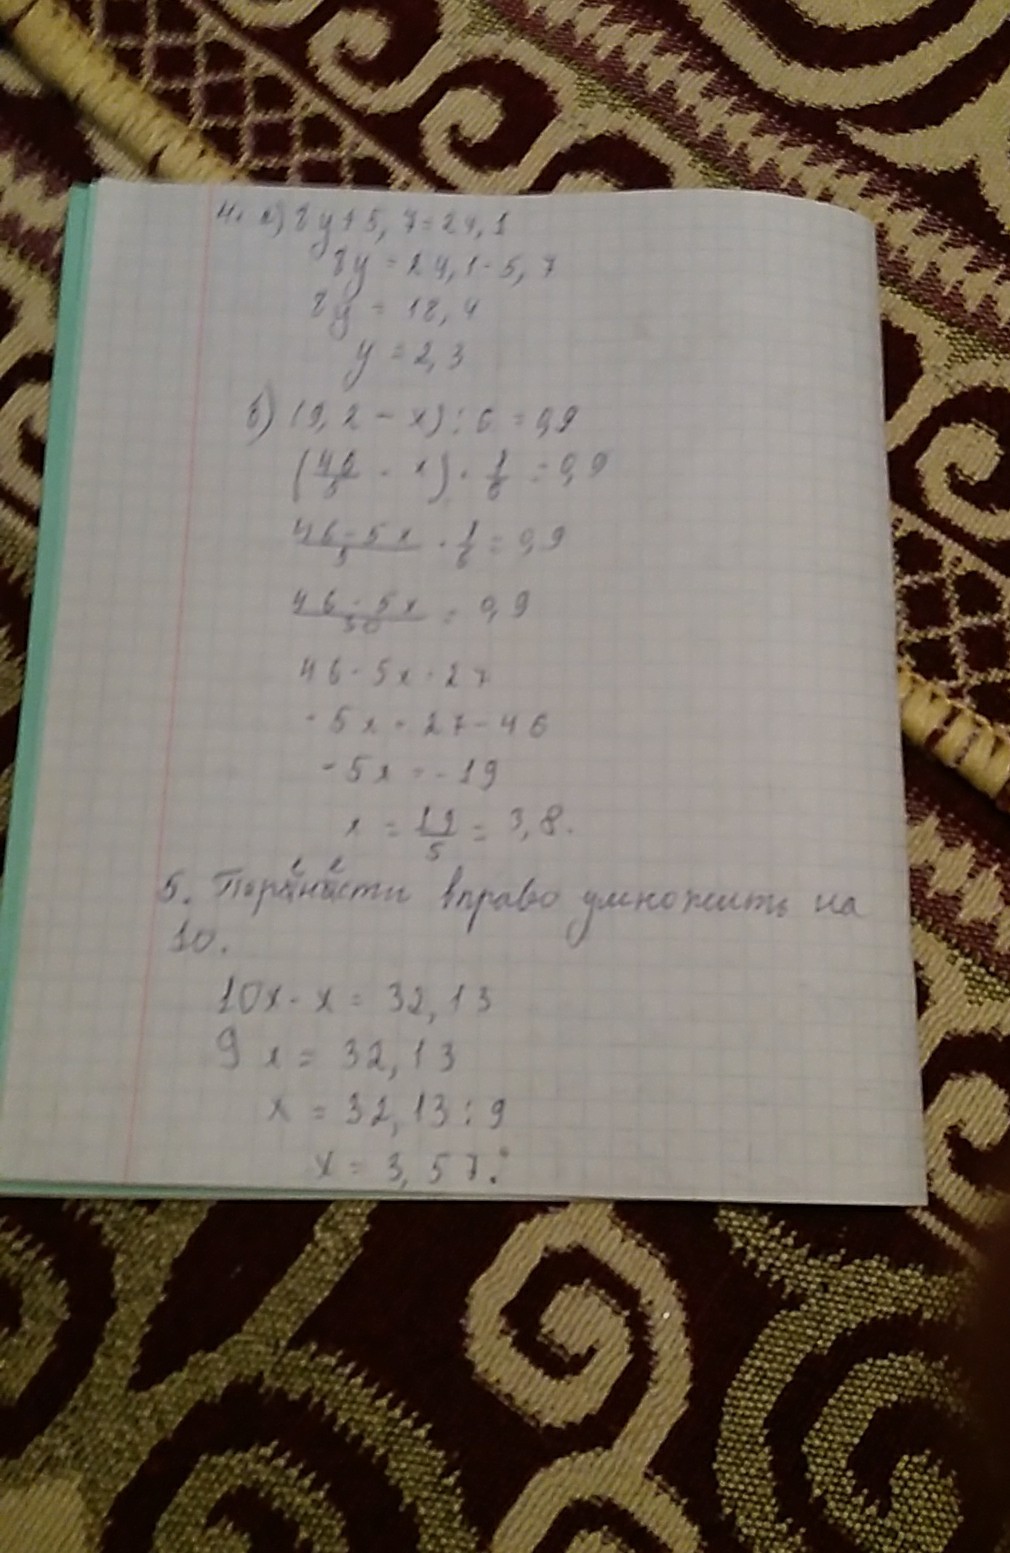 4. а) 8y + 5,7 = 24,1
8y = 24,1 - 5,7
8y = 18,4
y = 2,3
б) (9,2 - x) : 6 = 0,9
(46/5 - x) · 1/6 = 0,9
46 - 5x/5 · 1/6 = 0,9
46 - 5x/30 = 0,9
46 - 5x = 27
- 5x = 27 - 46
- 5x = - 19
x = 19/5 = 3,8.
5. Перенести вправо умножить на
10.
10x - x = 32,13
9x = 32,13
x = 32,13 : 9
x = 3,57.